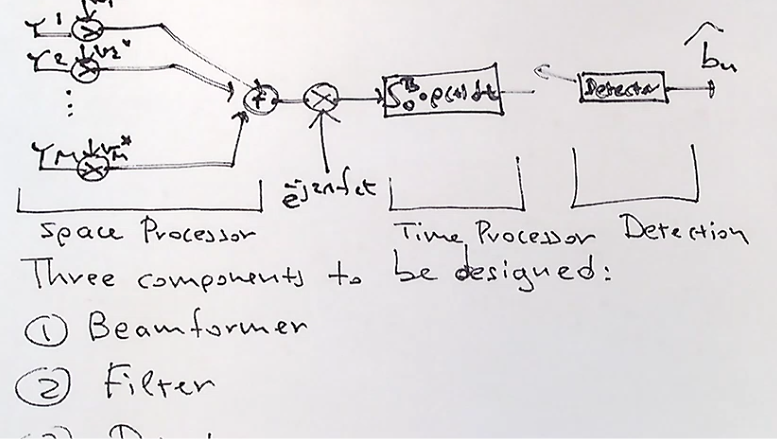 Y1
Y2 v2*
⋮
YM vM*
+
e^-j2πfct
∫0 · p(t) dt
Detector
b̂n
Space Processor
Time Processor
Detection
Three components to be designed:
① Beamformer
② Filter